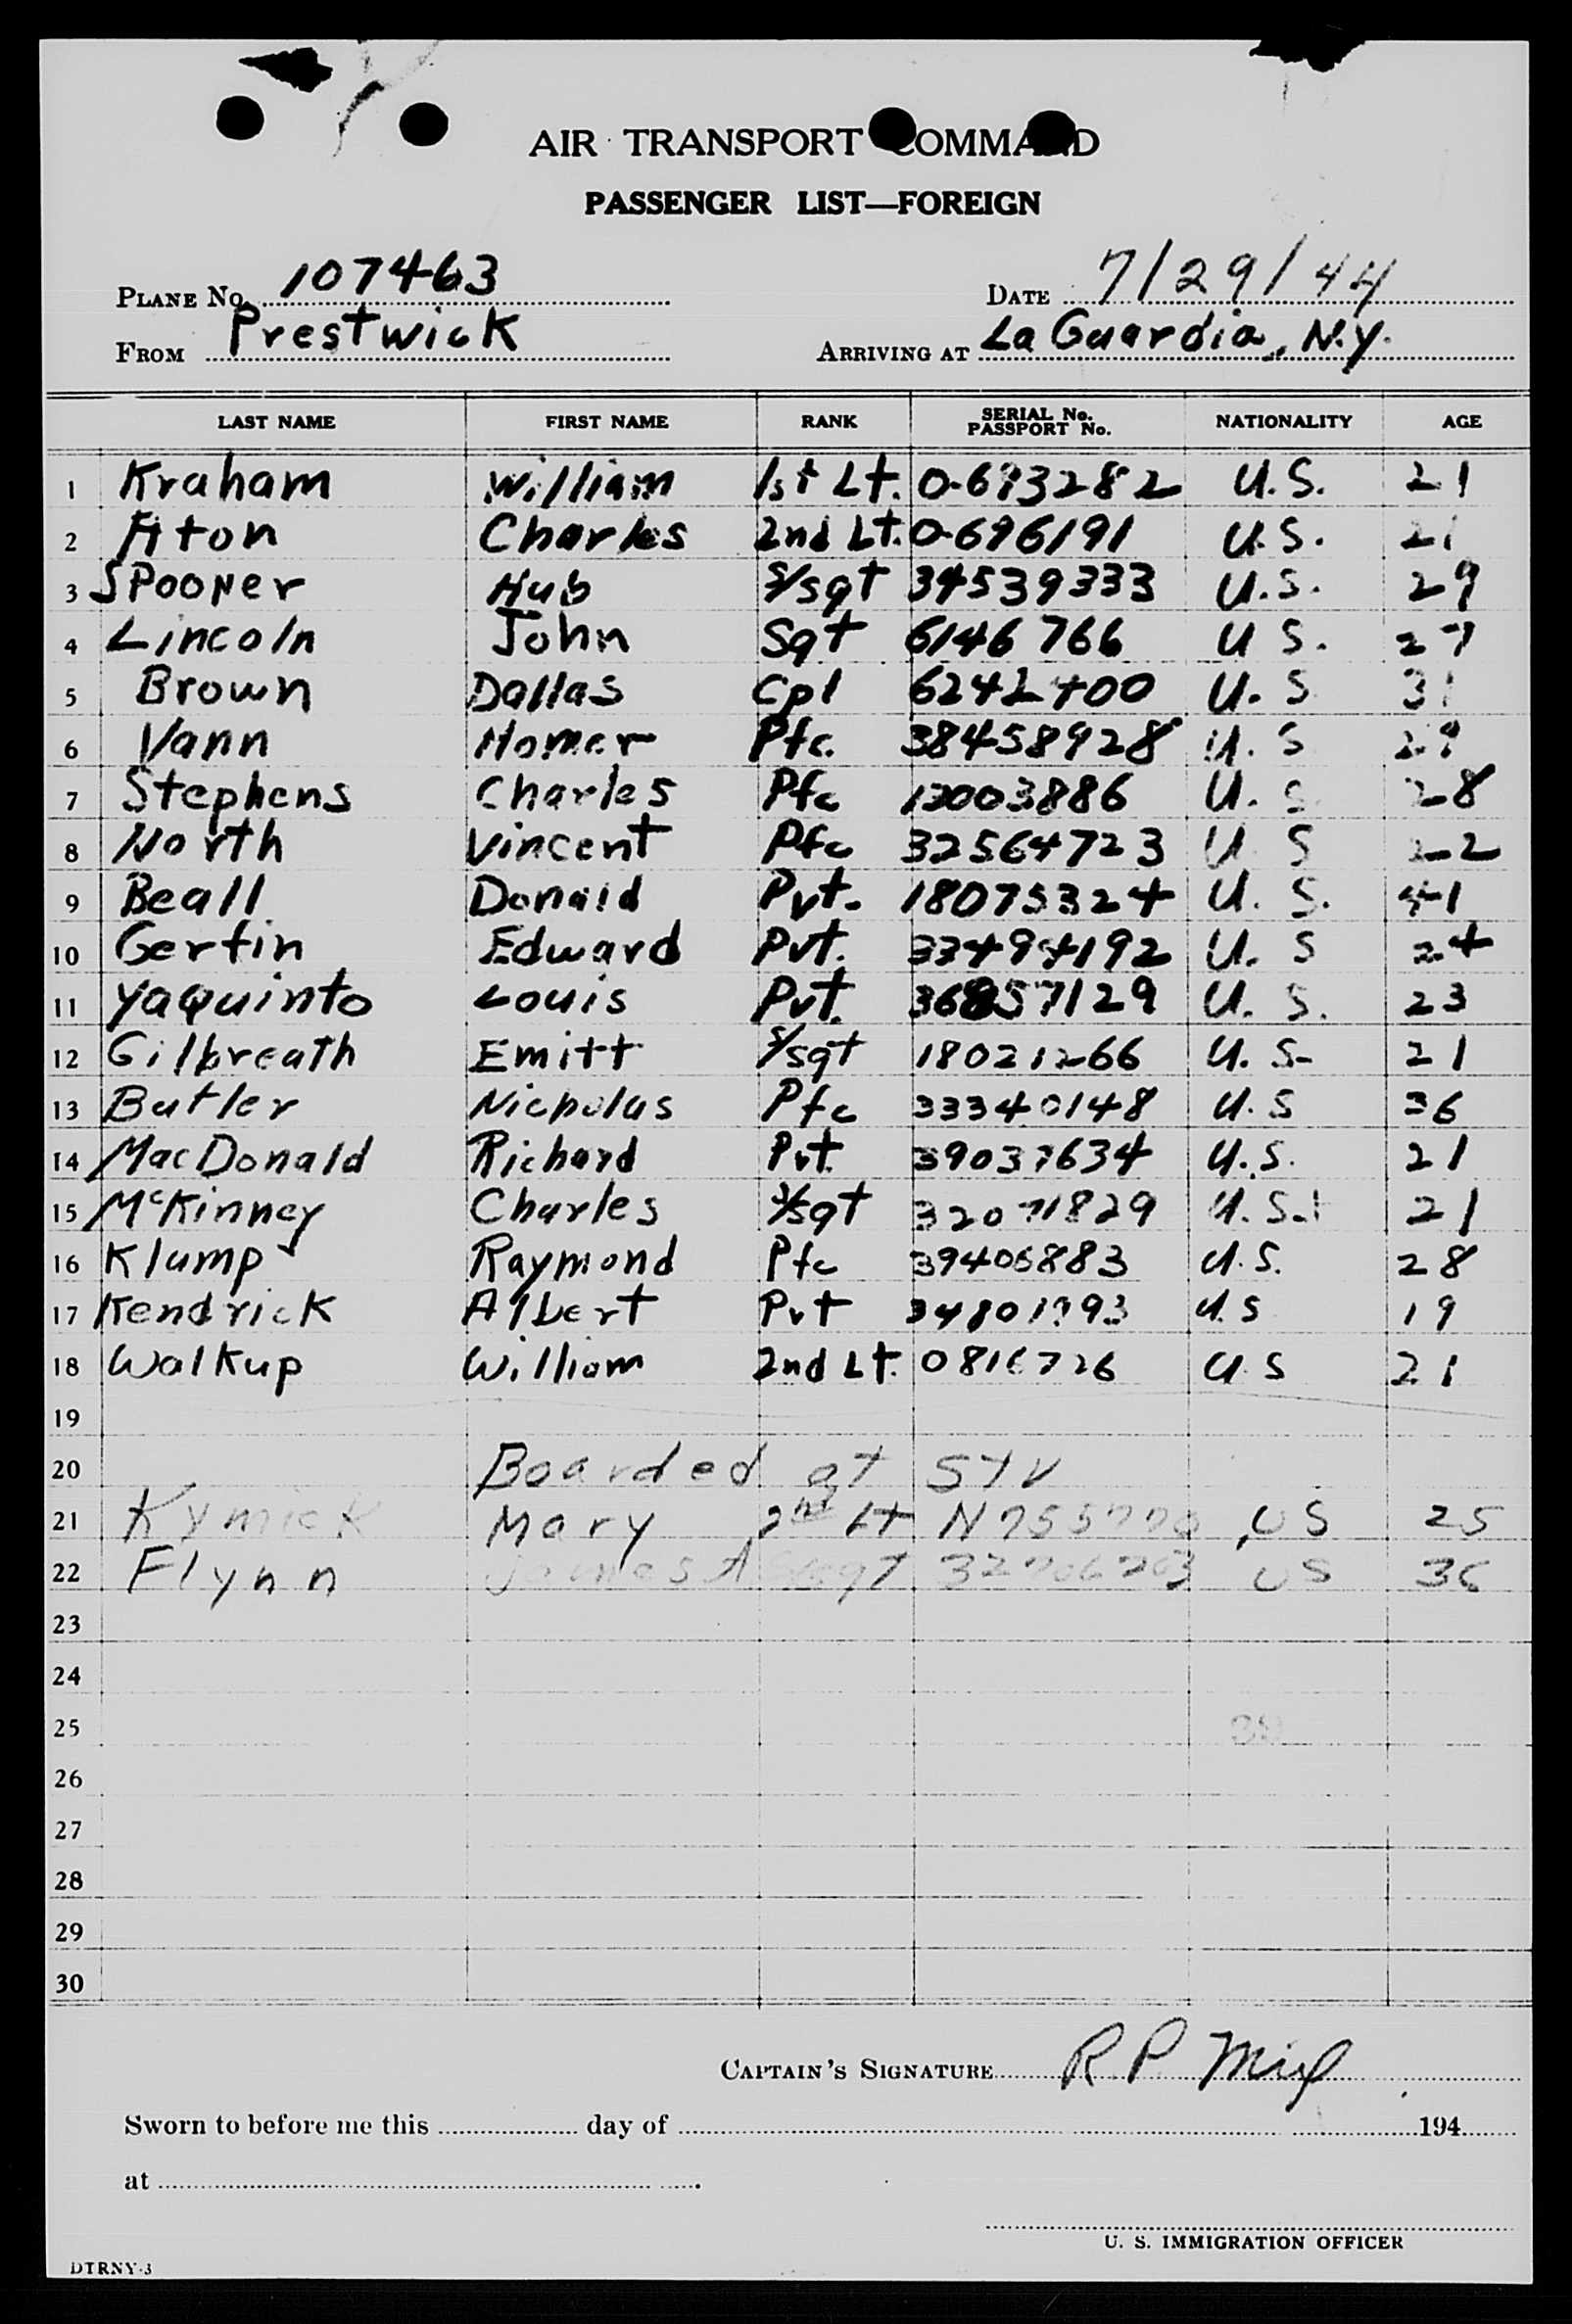 AIR TRANSPORT COMMAND
PASSENGER LIST—FOREIGN
PLANE No. 107463 DATE 7/29/44
FROM Prestwick ARRIVING AT La Guardia, N.Y.
LAST NAME FIRST NAME RANK SERIAL No. PASSPORT No. NATIONALITY AGE
1 Kraham William 1st Lt. O-693282 U.S. 21
2 Aton Charles 2nd Lt. O-696191 U.S. 21
3 Spooner Hub S/sgt 34539333 U.S. 29
4 Lincoln John Sgt 6146766 U S. 27
5 Brown Dallas Cpl U. S 31
6 Vann Homer Pfc. 38458928 U. S
7 Stephens Charles Pfc 13003886 U. S 28
8 North Vincent Pfc 32564723 U S 22
9 Beall Donald Pvt. 18075324 U. S. 41
10 Gertin Edward Pvt. 33494192 U. S 24
11 Yaquinto Louis Pvt. 36857129 U. S. 23
12 Gilbreath Emitt S/sgt 18021266 U. S. 21
13 Butler Nicholas Pfc 33340148 U. S 36
14 MacDonald Richard Pvt. 39037634 U.S. 21
15 McKinney Charles S/sgt 32071829 U.S. 21
16 Klump Raymond Pfc 39406883 U.S. 28
17 Kendrick Albert Pvt U.S 19
18 Walkup William 2nd Lt. 0816726 U S 21
19
20 Boarded at STV
21 Kymick Mary 2nd Lt US 25
22 Flynn James A US 36
23
24
25
26
27
28
29
30
CAPTAIN'S SIGNATURE R.P.
Sworn to before me this day of 194
at
U. S. IMMIGRATION OFFICER
DTRNY-3